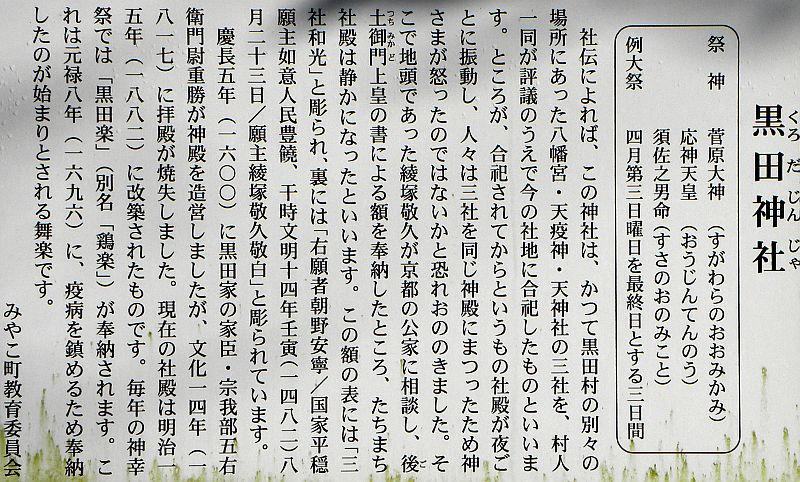 黒田神社
くろだじんじゃ
祭神　菅原大神（すがわらのおおみかみ）
応神天皇（おうじんてんのう）
須佐之男命（すさのおのみこと）
例大祭　四月第三日曜日を最終日とする三日間
社伝によれば、この神社は、かつて黒田村の別々の
場所にあった八幡宮・天疫神・天神社の三社を、村人
一同が評議のうえで今の社地に合祀したものといいま
す。ところが、合祀されてからというもの社殿が夜ご
とに振動し、人々は三社を同じ神殿にまつったため神
さまが怒ったのではないかと恐れおののきました。そ
こで地頭であった綾塚敬久が京都の公家に相談し、後
ご
土御門上皇の書による額を奉納したところ、たちまち
つちみかど
社殿は静かになったといいます。この額の表には「三
社和光」と彫られ、裏には「右願者朝野安寧／国家平穏
願主如意人民豊饒、干時文明十四年壬寅（一四八二）八
月二十三日／願主綾塚敬久敬白」と彫られています。
慶長五年（一六〇〇）に黒田家の家臣・宗我部五右
衛門尉重勝が神殿を造営しましたが、文化一四年（一
八一七）に拝殿が焼失しました。現在の社殿は明治一
五年（一八八二）に改築されたものです。毎年の神幸
祭では「黒田楽」（別名「鶏楽」）が奉納されます。こ
れは元禄八年（一六九六）に、疫病を鎮めるため奉納
したのが始まりとされる舞楽です。
みやこ町教育委員会